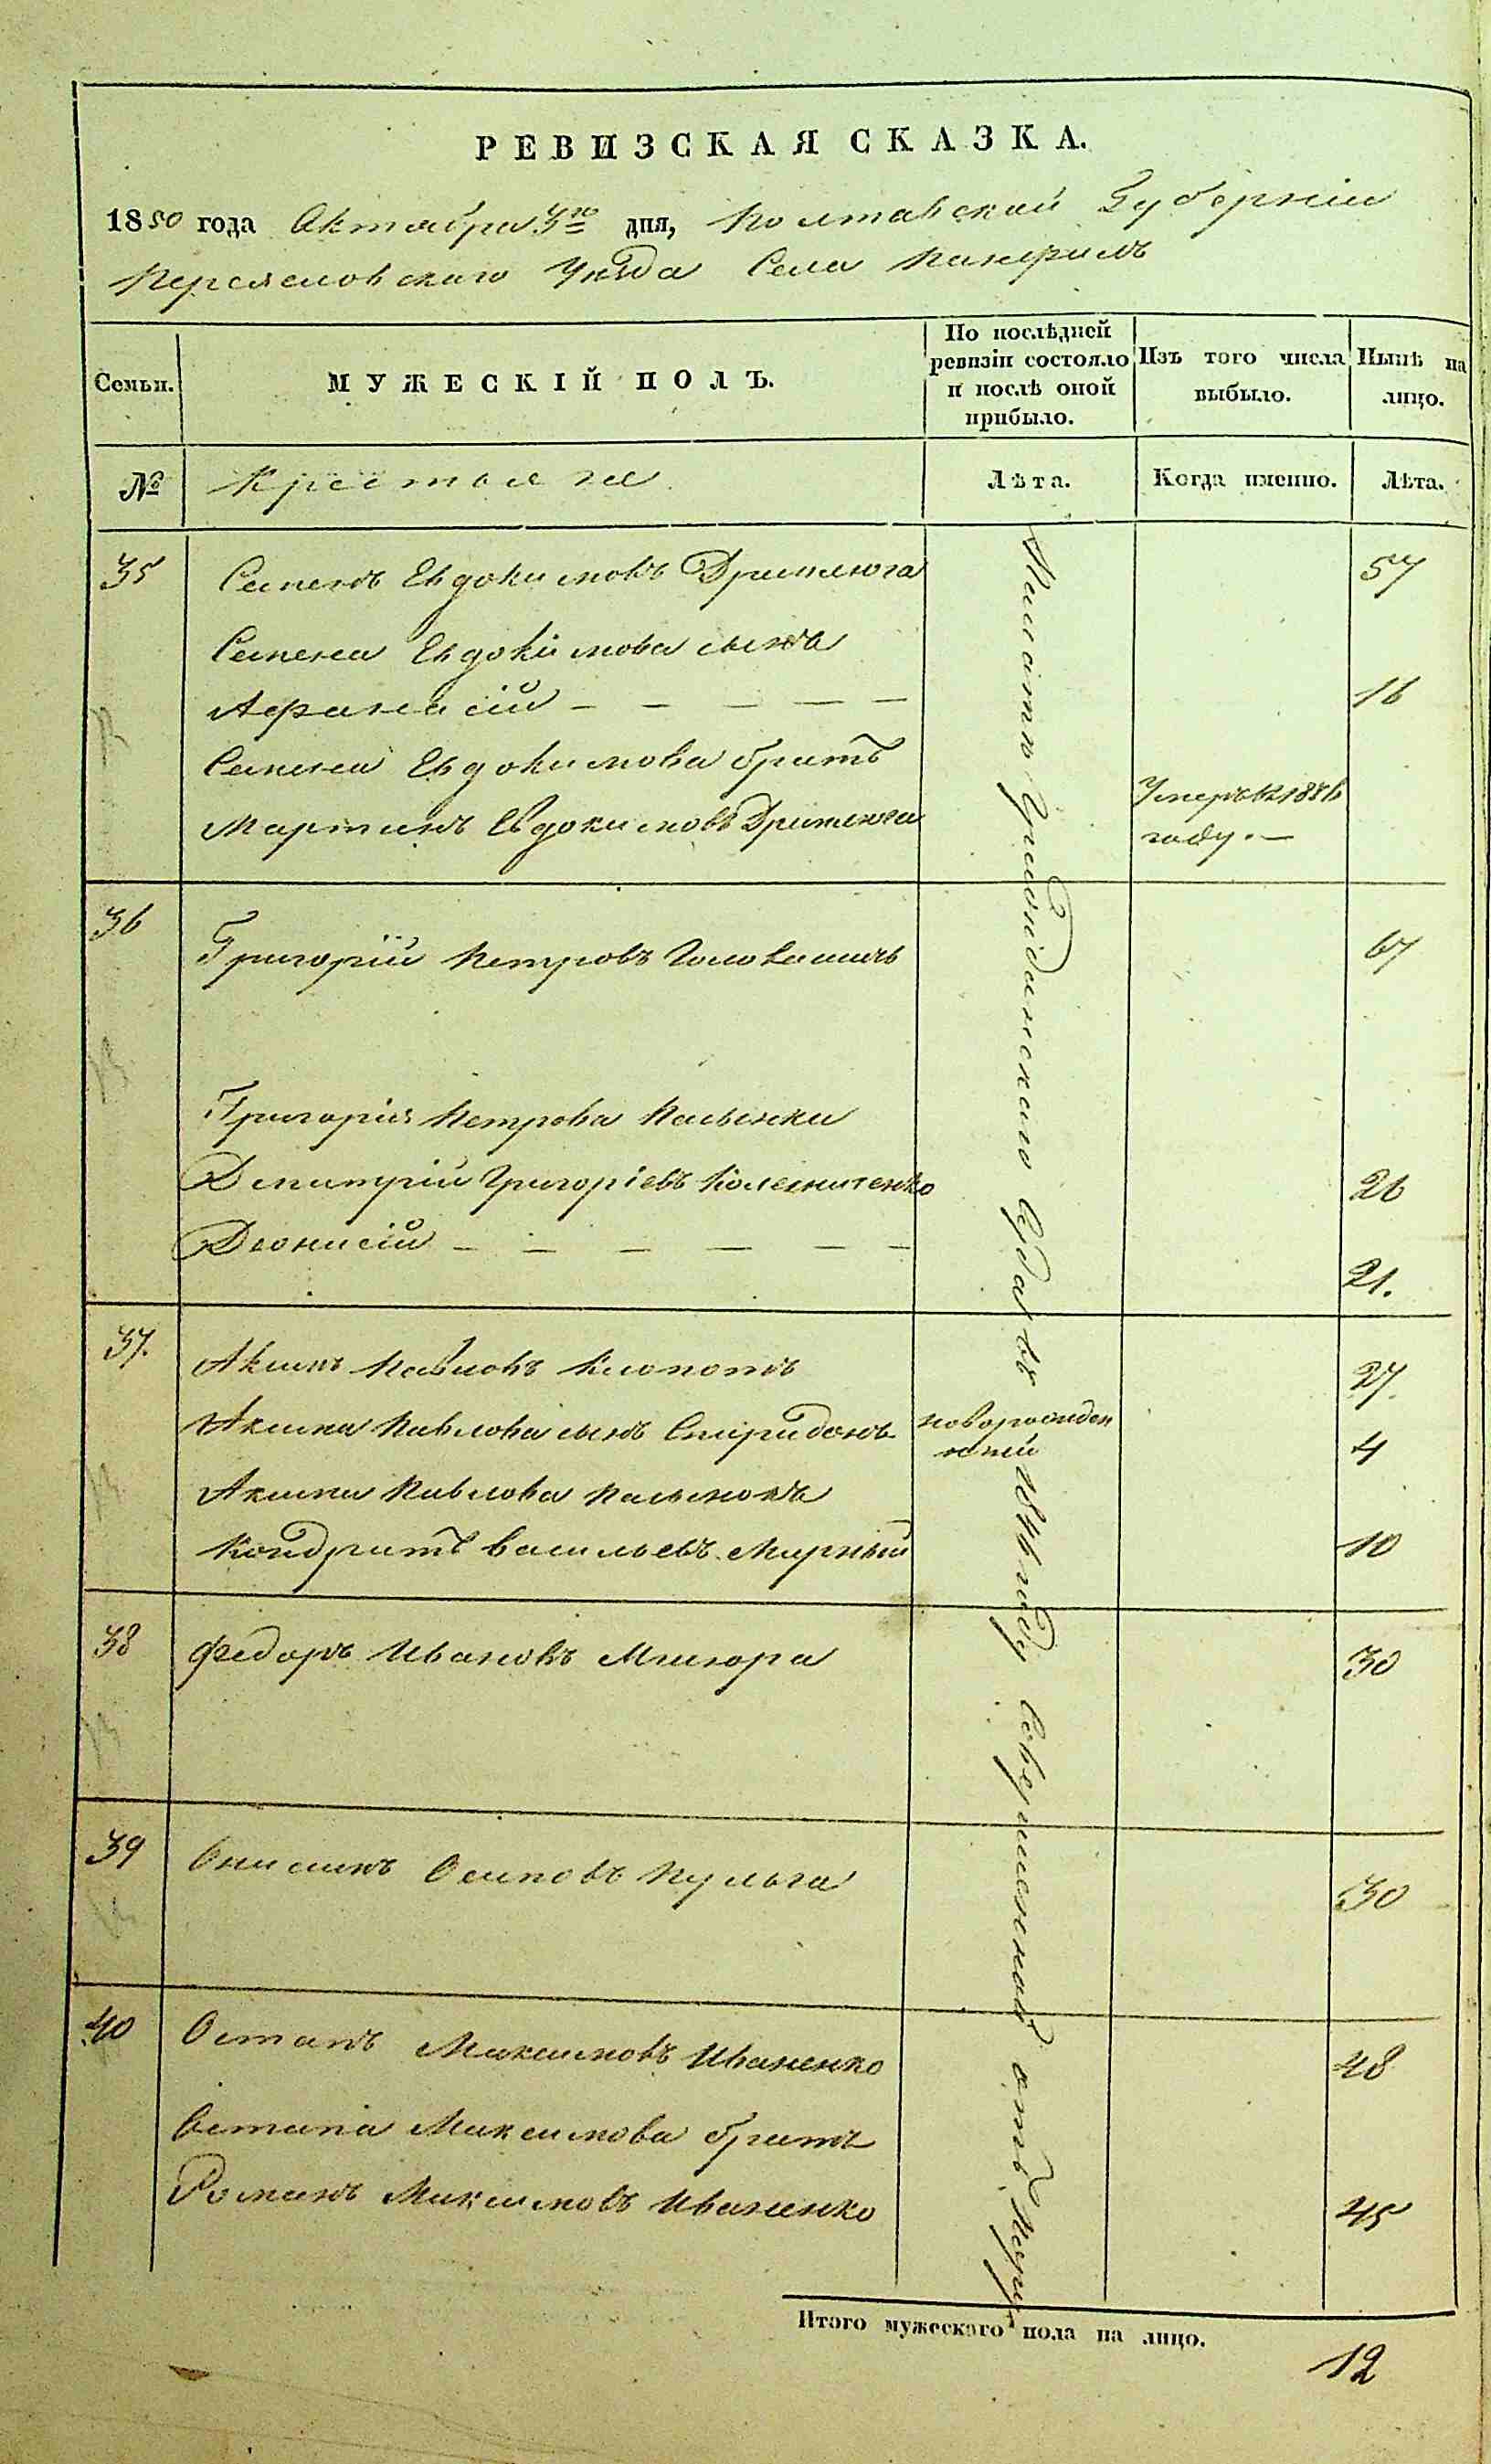 РЕВИЗСКАЯ СКАЗКА.
1850 года Октября 3го дня, Полтавской Губерніи
Переяславскаго Уѣзда Села
Семьи.
МУЖЕСКІЙ ПОЛЪ.
По послѣдней ревизіи состояло и послѣ оной прибыло.
Изъ того числа выбыло.
Нынѣ на лицо.
№
Крестьяне
Лѣта.
Когда именно.
Лѣта.
35 Семенъ Евдокимовъ Дримлюга 57
Семена Евдокимова сынъ
Афанасій — — — — — 16
Семена Евдокимова братъ
Мартинъ Евдокимовъ Дримлюга Умеръ въ 1836
году. —
36 Григорій Петровъ 67
Григорія Петрова пасынки
Дмитрій Григоріевъ Колесниченко 26
Діонисій — — — — — — 21.
37. Акимъ Павловъ Клопотъ 27.
Акима Павлова сынъ Спиридонъ новорожден
ный 4
Акима Павлова пасынокъ
Кондратъ Васильевъ Мирный 10
38 Федоръ Ивановъ Мшюра 30
39 Онисимъ Осиповъ Кульга 30
40 Остапъ Максимовъ Иваненко 48
Остапа Максимова братъ
Романъ Максимовъ Иваненко 45
году совершенной отъ
Итого мужескаго пола на лицо.
12